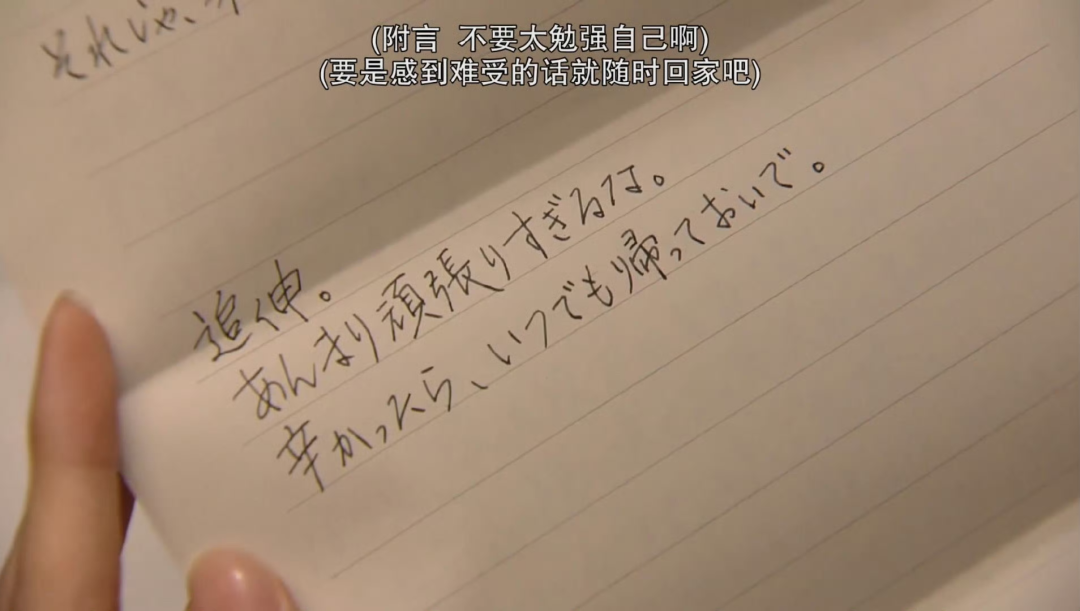 (附言 不要太勉强自己啊)
(要是感到难受的话就随时回家吧)
それじゃ、
追伸。
あんまり頑張りすぎるな。
辛かったら、いつでも帰っておいで。